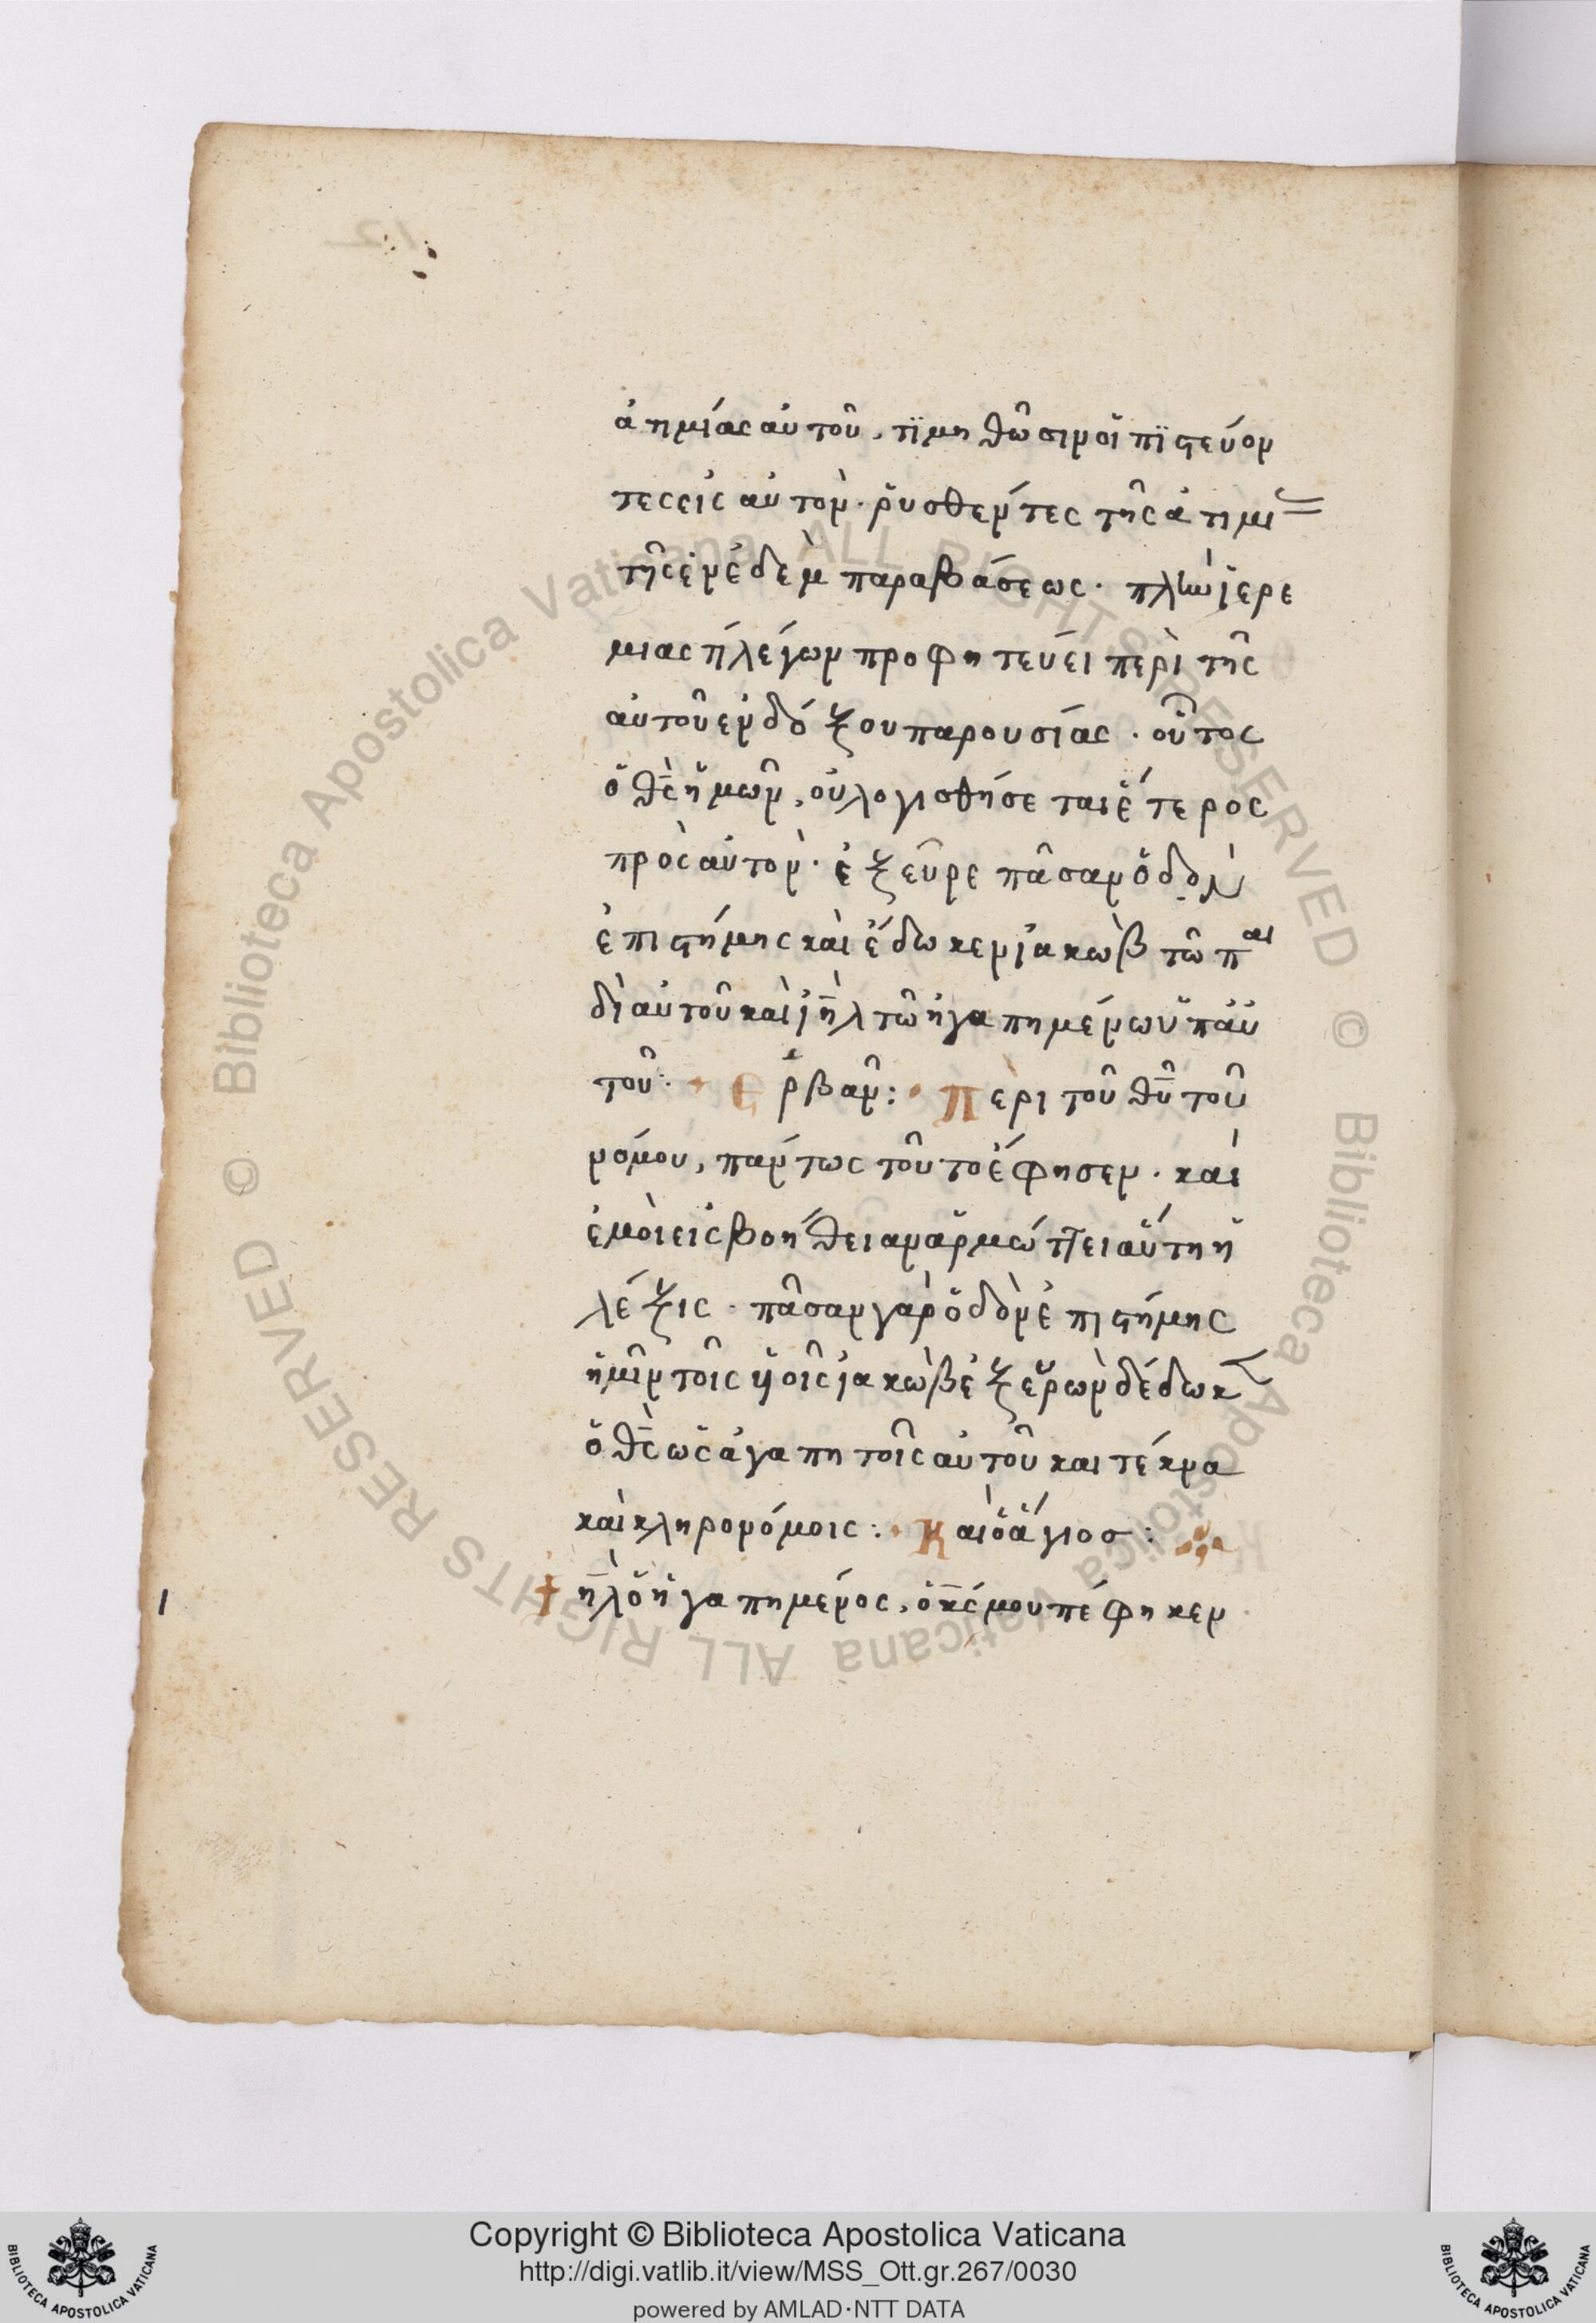 ἀτιμίας αὐτοῦ, τϊμηθῶσιν οἱ πϊστεύον
τες εἰς αὐτον· ῥυσθέντες τῆς ἀτιμί
τῆς ἐν ἐδὲμ παραβάσεως· πλὴν ἱερε
μιας ἡ λέγων προφητεύει περὶ τῆς
αὐτοῦ ενδόξου παρουσίας · οὗτος
ὁ θς ἡμῶν, οὐ λογισθήσεται ἕτερος
πρὸς αὐτον· ἐξεῦρε πᾶσαν ὁδὸν
ἐπιστήμης καὶ ἔδωκεν ἰακὼβ τῶ παι
δὶ αὐτοῦ καὶ ιηλ τῶ ἠγαπημένω ὑπ αὐ
τοῦ: Ερβαν: Περι τοῦ θυ τοῦ
νόμου, πάντως τοῦτο ἔφησεν · καὶ
ἐμοὶ εἰς βοήθειαν ἁρμώττει αὕτη ἡ
λέξις · πᾶσαν γὰρ ὁδὸν ἐπιστήμης
ἡμῖν τοῖς ϋοῖς ἰακὼβ ἐξευρων δέδωκ
ὁ θς ὡς ἀγαπητοῖς αὐτοῦ και τέκνα
καὶ κληρονόμοις: Και ὁ ἅγιοσ:
† ιηλ ὁ ἠγαπημένος, ὁ κς μου πέφηκεν
Copyright © Biblioteca Apostolica Vaticana
http://digi.vatlib.it/view/MSS_Ott.gr.267/0030
powered by AMLAD·NTT DATA